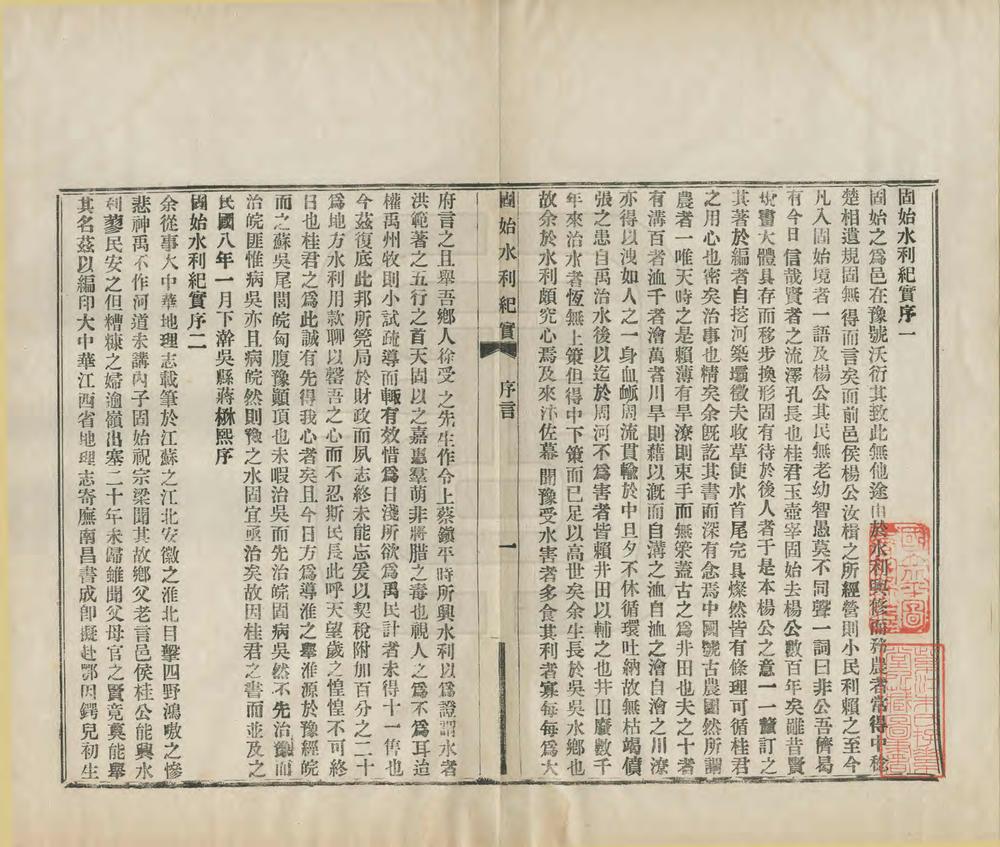 固始水利紀實序一
固始之爲邑在豫號沃衍其致此無他途由於水利興修而務農者常得中稔
楚相遺規固無得而言矣而前邑侯楊公汝楫之所經營則小民利賴之至今
凡入固始境者一語及楊公其民無老幼智愚莫不同聲一詞曰非公吾儕曷
有今日信哉賢者之流澤孔長也桂君玉壺宰固始去楊公數百年矣雖昔賢
規畫大體具存而移步換形固有待於後人者于是本楊公之意一一釐訂之
其著於編者自挖河築壩徵夫收草使水首尾完具燦然皆有條理可循桂君
之用心也密矣治事也精矣余既訖其書而深有念焉中國號古農國然所謂
農者一唯天時之是賴薄有旱潦則束手而無策蓋古之爲井田也夫之十者
有溝百者洫千者澮萬者川旱則藉以漑而自溝之洫自洫之澮自澮之川潦
亦得以洩如人之一身血衇周流貫輸於中旦夕不休循環吐納故無枯竭僨
張之患自禹治水後以迄於周河不爲害者皆賴井田以輔之也井田廢數千
年來治水者恆無上策但得中下策而已足以高世矣余生長於吳吳水鄉也
故余於水利頗究心焉及來汴佐幕聞豫受水害者多食其利者寡每每爲大
固始水利紀實 序言 一
府言之且舉吾鄉人徐受之先生作令上蔡鎭平時所興水利以爲證謂水者
洪範著之五行之首天固以之嘉惠羣萌非將腊之毒也視人之爲不爲耳迨
權禹州牧則小試疏導而輒有效惜爲日淺所欲爲禹民計者未得十一售也
今茲復底此邦所筦局於財政而夙志終未能忘爰以契稅附加百分之二十
爲地方水利用款聊以罄吾之心而不忍斯民長此呼天望歲之惶惶不可終
日也桂君之爲此誠有先得我心者矣且今日方爲導淮之舉淮源於豫經皖
而之蘇吳尾閭皖匈腹豫顚頂也未暇治吳而先治皖固病吳然不先治豫而
治皖匪惟病吳亦且病皖然則豫之水固宜亟治矣故因桂君之書而並及之
民國八年一月下澣吳縣蔣楙熙序
固始水利紀實序二
余從事大中華地理志載筆於江蘇之江北安徽之淮北目擊四野鴻嗷之慘
悲神禹不作河道未講內子固始祝宗梁聞其故鄉父老言邑侯桂公能興水
利蓼民安之但糟糠之婦逾嶺出塞二十年未歸雖聞父母官之賢竟莫能舉
其名茲以編印大中華江西省地理志寄廡南昌書成卽擬赴鄂因鍔兒初生